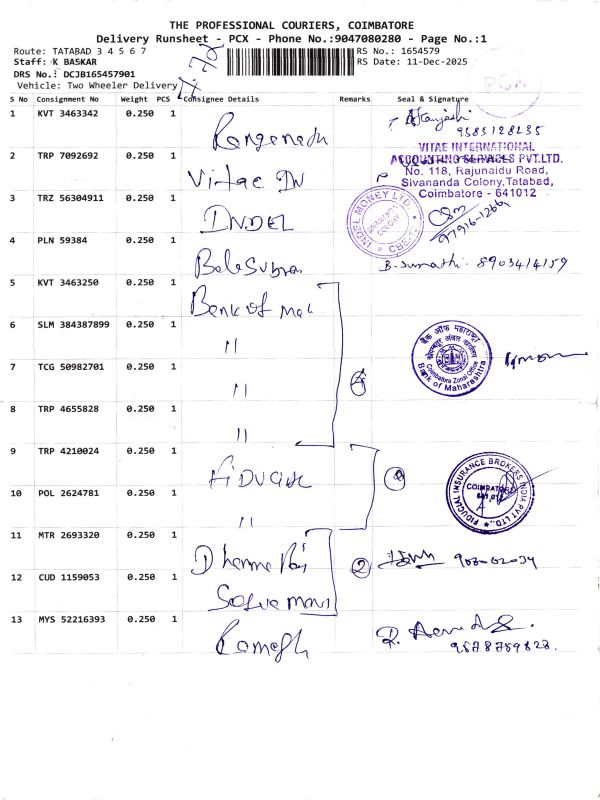 THE PROFESSIONAL COURIERS, COIMBATORE
Delivery Runsheet - PCX - Phone No.:9047080280 - Page No.:1
Route: TATABAD 3 4 5 6 7
RS No.: 1654579
Staff: K BASKAR
RS Date: 11-Dec-2025
DRS No.: DCJB165457901
Vehicle: Two Wheeler Delivery
PCX
S No Consignment No Weight PCS Consignee Details Remarks Seal & Signature
1 KVT 3463342 0.250 1
VITAE INTERNATIONAL
ACCOUNTING SERVICES PVT.LTD.
No. 118, Rajunaidu Road,
Sivananda Colony,Tatabad,
Coimbatore - 641012
2 TRP 7092692 0.250 1 Vitae IN
3 TRZ 56304911 0.250 1 INDEL
INDEL MONEY LTD.
4 PLN 59384 0.250 1 Balasubra B. Sumathi. 8903414159
5 KVT 3463250 0.250 1 Bank of Mah
6 SLM 384387899 0.250 1 "
बैंक ऑफ महाराष्ट्र
Coimbatore Zonal Office
Bank of Maharashtra
7 TCG 50982701 0.250 1 "
4
8 TRP 4655828 0.250 1 "
9 TRP 4210024 0.250 1 Fiducial
FIDUCIAL INSURANCE BROKERS INDIA PVT LTD.,
COIMBATORE
10 POL 2624781 0.250 1 "
11 MTR 2693320 0.250 1
2
12 CUD 1159053 0.250 1
13 MYS 52216393 0.250 1 Ramesh